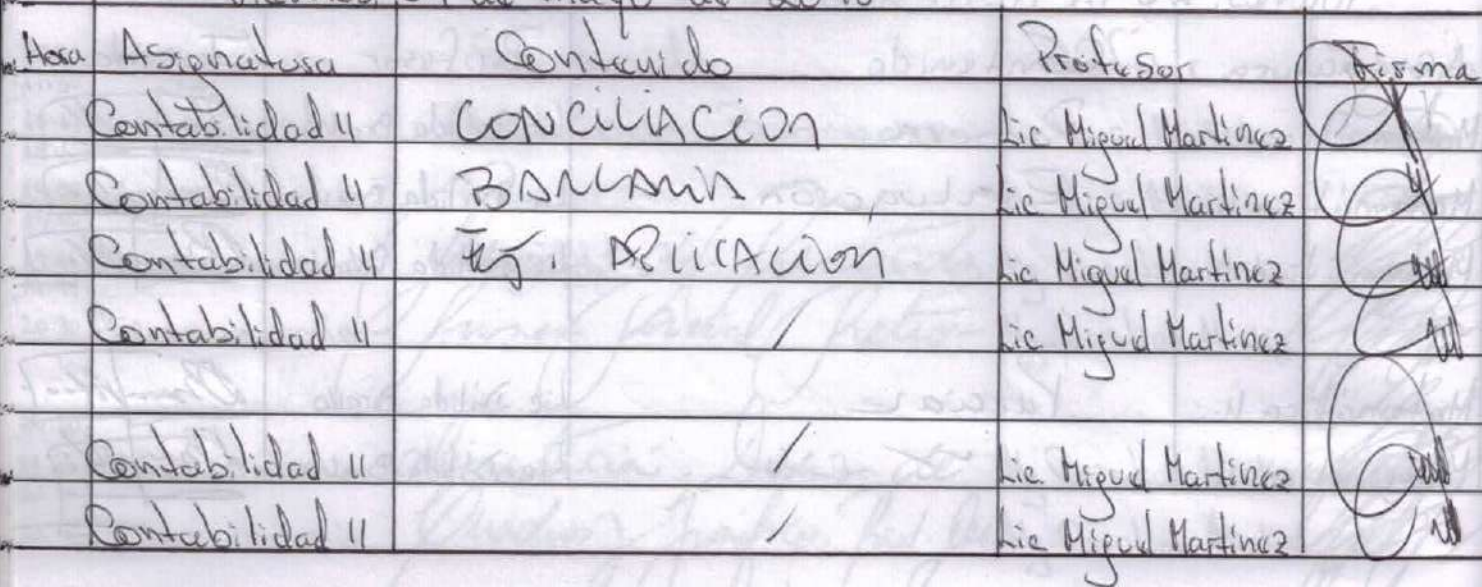 de Mayo de
Hora Asignatura Contenido Profesor Firma
Contabilidad II CONCILIACION Lic Miguel Martinez
Contabilidad II BANCARIA Lic Miguel Martinez
Contabilidad II Ej. APLICACION Lic Miguel Martinez
Contabilidad II / Lic Miguel Martinez
Contabilidad II / Lic Miguel Martinez
Contabilidad II / Lic Miguel Martinez